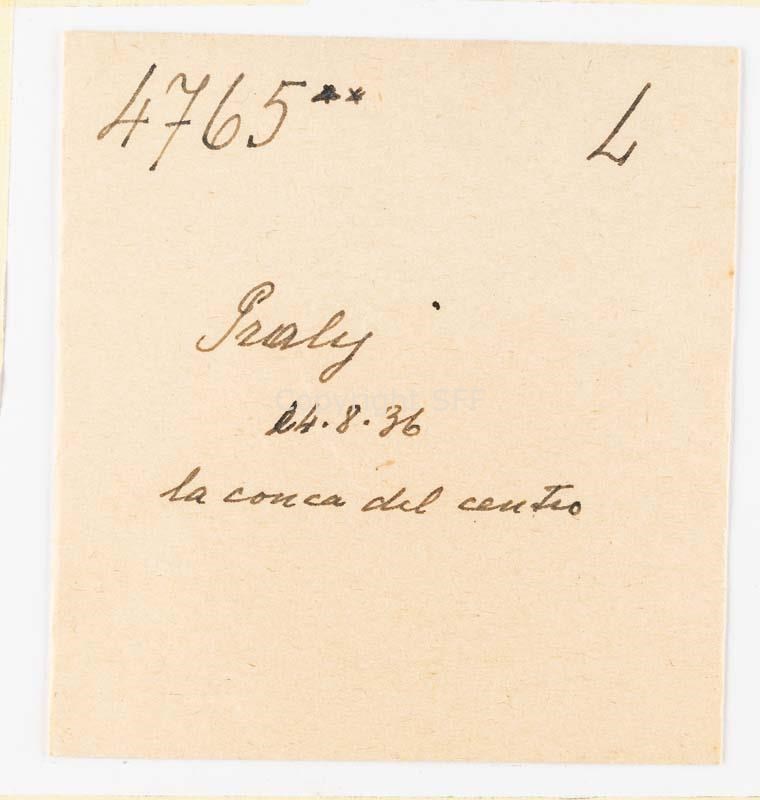 4765** L
Praly
24.8.36
Copyright SFF
la conca del centro